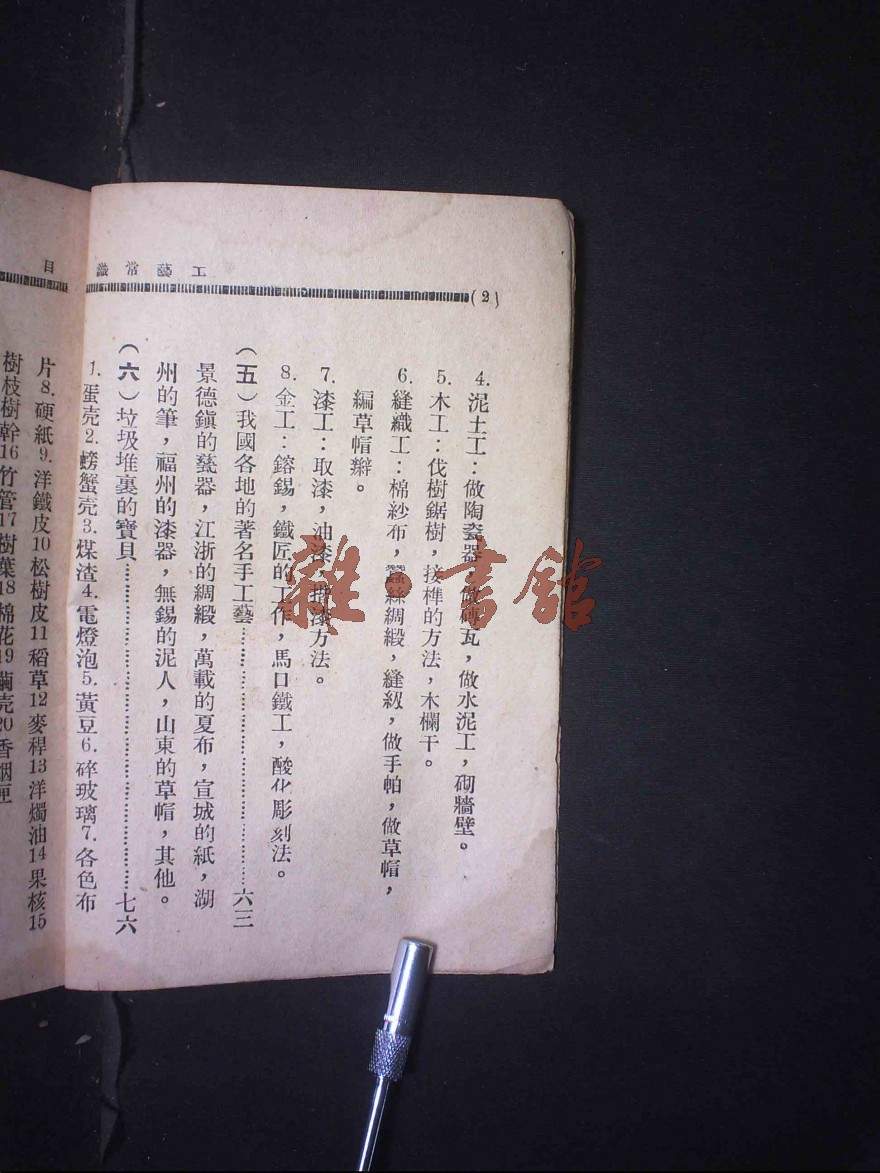 工藝常識
目
(2)
4. 泥土工：做陶瓷器，做磚瓦，做水泥工，砌牆壁。
5. 木工：伐樹鋸樹，接榫的方法，木欄干。
6. 縫織工：棉紗布，蠶絲綢緞，縫級，做手帕，做草帽，
編草帽辮。
7. 漆工：取漆，油漆，漆方法。
8. 金工：鎔錫，鐵匠的工作，馬口鐵工，酸化彫刻法。
（五）我國各地的著名手工藝……六三
景德鎮的甆器，江浙的綢緞，萬載的夏布，宣城的紙，湖
州的筆，福州的漆器，無錫的泥人，山東的草帽，其他。
（六）垃圾堆裏的寶貝……七六
1. 蛋壳 2. 螃蟹壳 3. 煤渣 4. 電燈泡 5. 黃豆 6. 碎玻璃 7. 各色布
片 8. 硬紙 9. 洋鐵皮 10 松樹皮 11 稻草 12 麥稈 13 洋燭油 14 果核 15
樹枝樹幹 16 竹管 17 樹葉 18 棉花 19 繭壳 20 香烟匣
雜·書館